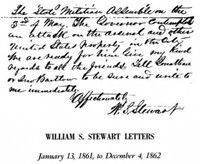 The State Militia Assemble on the
3rd of May. The Governor contemplates
an attack on the arsenal and other
United States Property in the City
We are ready for him Give my kind
regards to all the friends. Tell Jonathan
or Jno Bartlow to be sure and write to
me immediately.
Affectionately
W. S. Stewart
WILLIAM S. STEWART LETTERS
January 13, 1861, to December 4, 1862